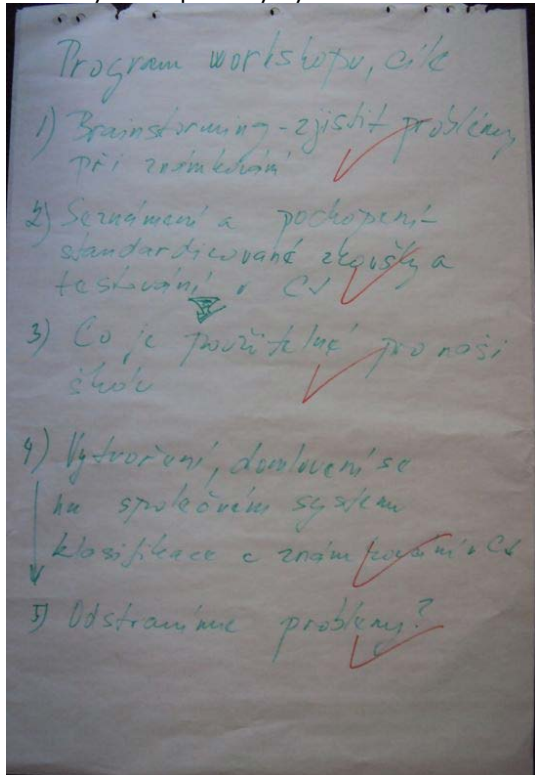 Program workshopu, cíle
1) Brainstorming - zjistit problémy
při známkování
2) Seznámení a pochopení
standardizované zkoušky a
testování v CJ
3) Co je použitelné pro naši
školu
4) Vytvoření, domluvení se
na společném systému
klasifikace a známkování v CJ
5) Odstraníme problémy?